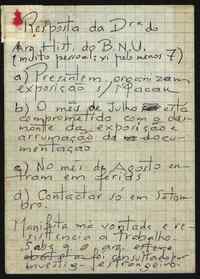 Resposta da Dra do
Arq. Hist. do B.N.U.
(muito pessoal; vi pelo menos 7)
a) Precisam, organizam
exposição s/ Macau
b) O mês de Julho está
comprometido com o des-
monte da exposição e
arrumação da docu-
mentação
c) No mês de Agosto en-
tram em férias
d) Contactar só em Setem-
bro.
Manifesta má vontade e re-
sistencia a trabalho
Sabe q o arq.
foi consultado p
investig. estrangeiro